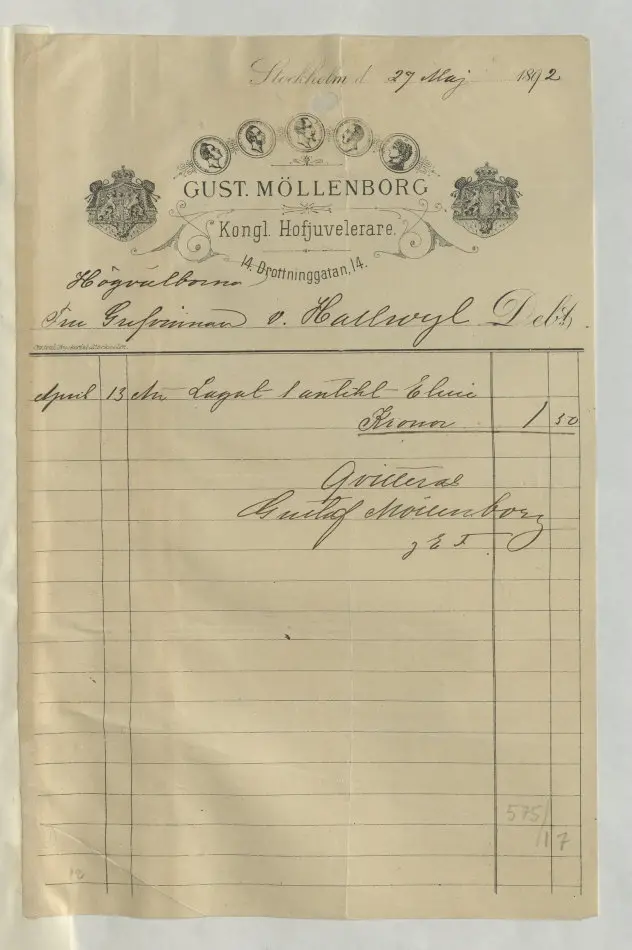 Stockholm d 27 Maj 1892
GUST. MÖLLENBORG
Kongl. Hofjuvelerare.
14. Drottninggatan. 14.
Högvälborna
Fru Grefvinnan v. Hallwyl Debt.
April 13 An Lagat 1 antikt Etui
Kronor 1 50
Qvitteras
Gustaf Möllenborg
g E F
575/
17
12